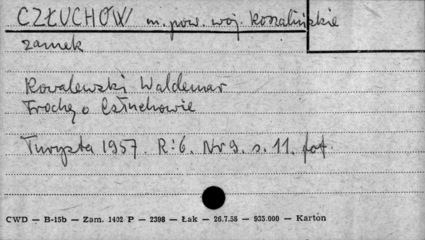 CZŁUCHÓW m. pow. woj. koszalińskie
zamek
Kowalewski Waldemar
Trochę o Człuchowie
Turysta 1957. R: 6. Nr 9. s. 11. fot
CWD — B-15b — Zam. 1402 P — 2398 — Łak — 26.7.58 — 935.000 — Karton